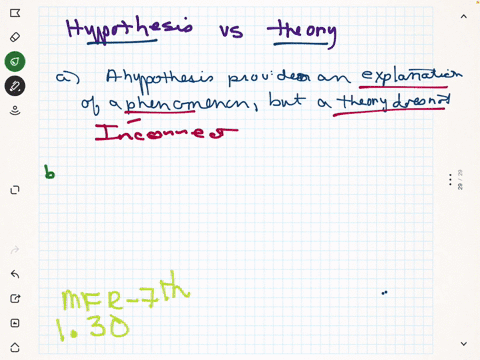 Hypothesis vs theory
a) A hypothesis provides an explanation
of a phenomenon, but a theory does not
Incorrect
b
MFR-7th
1.30
29 / 29